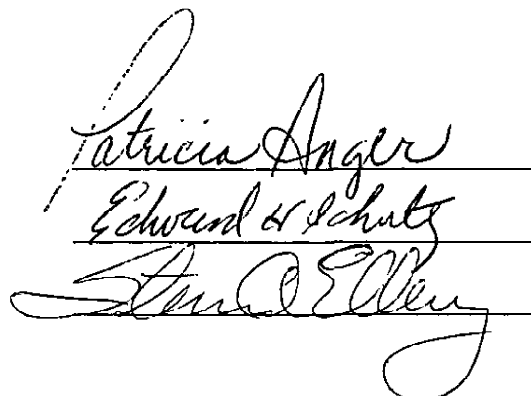 Patricia Anger
Edward H Schutz
Steven D Ellery